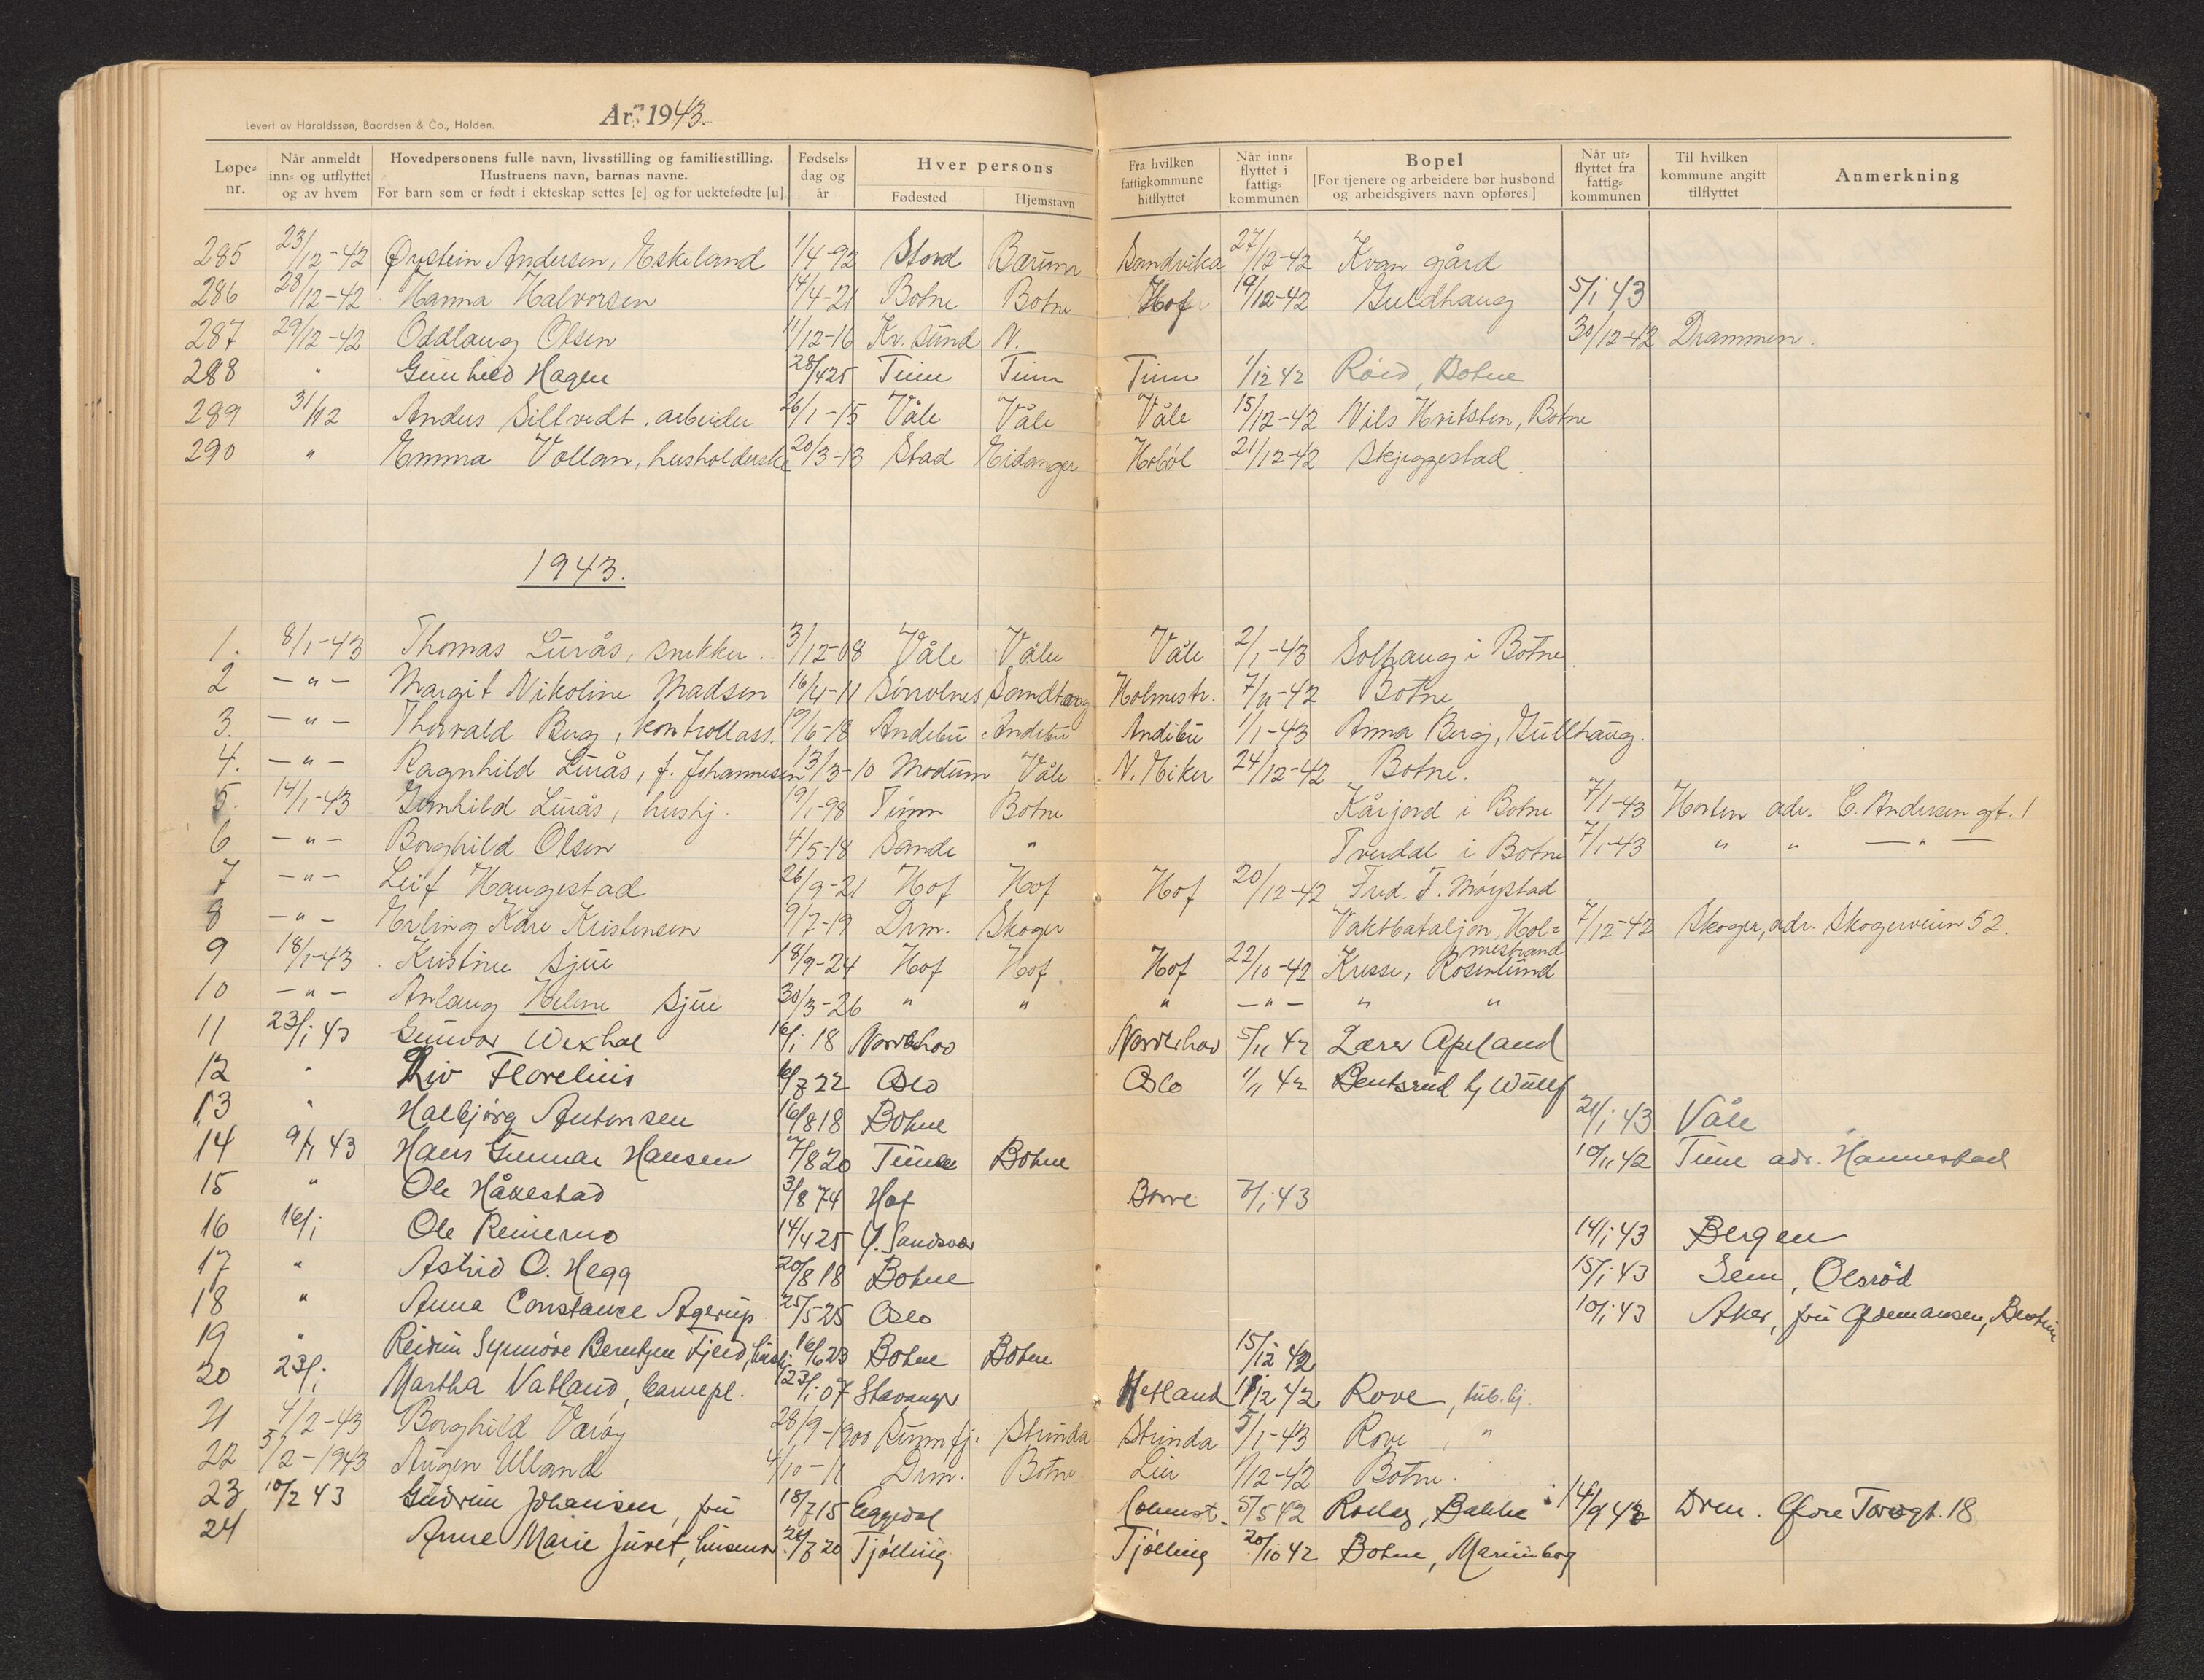 Levert av Haraldssøn, Baardsen & Co., Halden.
År 1943.
Løpe-nr. Når anmeldt inn- og utflyttet og av hvem Hovedpersonens fulle navn, livsstilling og familiestilling. Hustruens navn, barnas navne. For barn som er født i ekteskap settes [e] og for uektefødte [u] Fødsels-dag og år Hver persons Fødested Hjemstavn Fra hvilken fattigkommune hitflyttet Når inn-flyttet i fattig-kommunen Bopel [For tjenere og arbeidere bør husbond og arbeidsgivers navn opføres] Når ut-flyttet fra fattig-kommunen Til hvilken kommune angitt tilflyttet Anmerkning
285 23/12-42 Øystein Andersen, Eskeland 1/4-92 Stord Bærum Sandvika 27/12-42 Kvan gård
286 28/12-42 Hanna Halvorsen 14/4-21 Botne Botne Hof 19/12-42 Guldhaug 5/1 43
287 29/12-42 Oddlaug Olsen 11/12-16 Kr. sund N. 30/12-42 Drammen.
288 " Gunhild Hagen 28/4 25 Tinn Tinn Tinn 1/12 42 Røed, Botne
289 31/12 Anders Siltvedt, arbeider 26/1-15 Våle Våle Våle 15/12-42 Nils Hvitsten, Botne
290 " Emma Vollan, husholderske 20/3-13 Stad Eidanger Hobøl 21/12-42 Skjeggestad.
1943.
1. 8/1-43 Thomas Lurås, snekker. 3/12-08 Våle Våle Våle 2/1-43 Solhaug i Botne.
2 -"- Margit Nikoline Madsen 16/4-11 Sørrolnes Sandtorg Holmestr. 7/11-42 Botne
3. -"- Thorvald Berg, kontrollass. 19/6-18 Andebu Andebu Andebu 1/1-43 Anna Berg, Gullhaug.
4. -"- Ragnhild Lurås, f. Johannesen 13/3-10 Modum Våle N. Eiker 24/12-42 Botne.
5. 14/1-43 Gunhild Lurås, hushj. 19/1-98 Tinn Botne Kårjord i Botne 7/1-43 Horten adr. C. Andersen gt. 1
6 -"- Borghild Olsen 4/5-18 Sande " Tverdal i Botne 7/1-43 " " -"-
7 -"- Leif Haugestad 26/9-21 Hof Hof Hof 20/12-42 Fred. F. Møystad
8 -"- Erling Kåre Kristensen 9/7-19 Drm. Skoger Vaktbataljon, Hol-mestrand 7/12-42 Skoger, adr. Skogerveien 52.
9 18/1-43 Kristine Sjue 18/9-24 Hof Hof. Hof 22/10-42 Kresse, Rosenlund
10 -"- Anlaug Helene Sjue 30/3-26 " " " -"- " "
11 23/1 43 Gunvor Wexhal 16/1 18 Norderhov Norderhov 5/11 42 Lærer Apeland
12 " Liv Florelius 6/7 22 Oslo Oslo 1/11 42 Bentsrud hj Wulff
13 " Halbjørg Antonsen 16/8 18 Botne 21/1 43 Våle
14 9/1 43 Hans Gunnar Hansen 7/8 20 Tune Botne 10/11 42 Tune adr. Hannestad
15 " Ole Håkestad 3/8 74 Hof Borre 7/1 43
16 16/1 Ole Reinemo 14/4 25 Y. Sandsvær 14/1 43 Bergen
17 " Astrid O. Hegg 20/8 18 Botne 15/1 43 Sem, Olsrød
18 " Anna Constance Agerup 25/5 25 Oslo 10/1 43 Aker, fru
19 " Reidun Synnøve Berntzen Fjeld, hushj. 16/6 23 Botne Botne 15/12 42
20 23/1 Martha Vatland, barnepl. 23/1 07 Stavanger Hetland 11/12 42 Rove, tub. hj.
21 4/2-43 Borghild Værøy 28/9-1900 Strinda Strinda 5/1-43 Rove, "
22 5/2-1943 Augen Ulland 4/10-11 Drm. Botne Lier 1/12-42 Botne.
23 10/2 43 Gudrun Johansen, fru 18/7 15 Eggedal Holmest. 5/5 42 Rollag, Bakke 14/9 42 Drm. Øvre Torvgt. 18
24 Anne Marie Juret, husmor. 24/7 20 Tjølling Tjølling 20/10 42 Botne, Marienborg